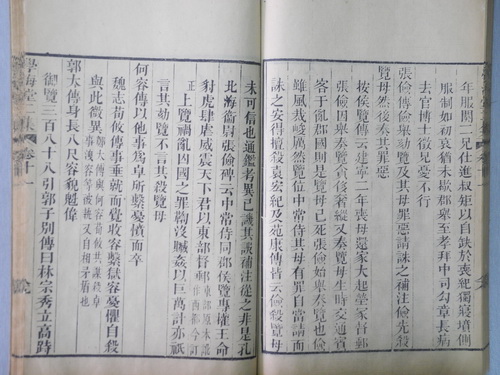 年服闋二兄仕進叔矩以自缺於喪紀獨寢墳側
服制如初袁猶未郡舉至孝拜中司勾章長病
去官博士徵兄憂不行
張儉傳儉舉劾覽及其母罪惡請誅之補注儉先殺
覽母然後奏其罪惡
按侯覽傳云建寧二年喪母還家大起塋冢督郵
張儉因舉奏覽貪侈奢縱又奏覽母生時交通賓
客干亂郡國則是覽母已死張儉始舉奏覽也儉
雖風裁峻厲然覽位中常侍其母有罪自當請而
誅之安得擅殺袁宏紀及苑康傳皆云儉殺覽母
未可信也通鑑考異已譏其誤補注從之非是孔
北海衞尉張儉碑云中常侍同郡侯覽專權王命
豺虎肆虐威震天下君以東部督郵
東部原本誤
作西都今訂
正
上覽禍亂凶國之罪鞠沒贓姦以巨萬計亦祇
言其劾覽不言其殺覽母
何容傳以他事為卓所繫憂憤而卒
魏志荀攸傳事垂就而覺收容繫獄容憂懼自殺
與此微異
鄭太傳與何容荀攸共謀殺卓
事洩容等被執又自相矛盾也
郭太傳身長八尺容貌魁偉
御覽三百八十八引郭子別傳曰林宗秀立高跱
學海堂 集 卷十一